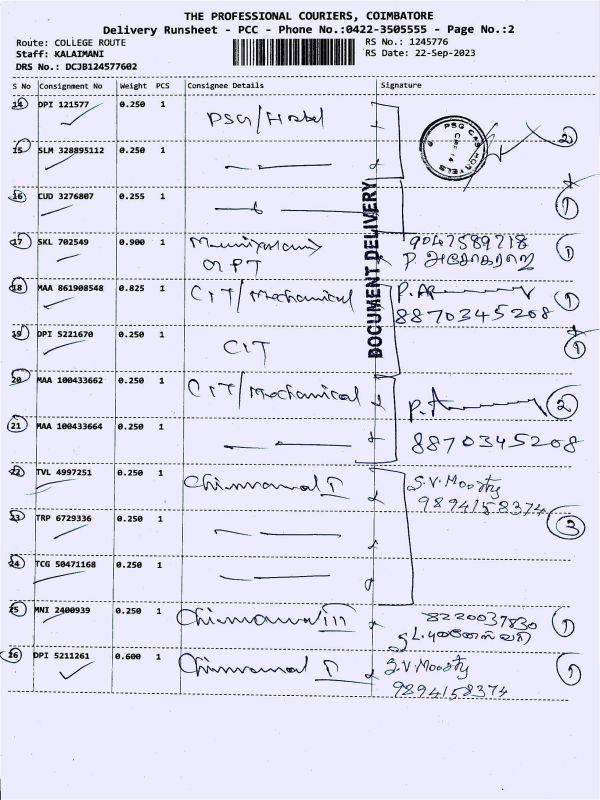 THE PROFESSIONAL COURIERS, COIMBATORE
Delivery Runsheet - PCC - Phone No.:0422-3505555 - Page No.:2
Route: COLLEGE ROUTE
Staff: KALAIMANI
DRS No.: DCJB124577602
RS No.: 1245776
RS Date: 22-Sep-2023
S No Consignment No Weight PCS Consignee Details Signature
14 DPI 121577 0.250 1 PSG/Hostel 2
15 SLM 328895112 0.250 1
16 CUD 3276807 0.255 1 1
17 SKL 702549 0.900 1 9047589718 1
OPT P. அசோகராஜ்
18 MAA 861908548 0.825 1 CIT/Mechanical 1
8870345208
19 DPI 5221670 0.250 1 CIT 1
20 MAA 100433662 0.250 1 CIT/Mechanical 2
21 MAA 100433664 0.250 1 8870345208
22 TVL 4997251 0.250 1 I S.V. Moorthy
9894158374
23 TRP 6729336 0.250 1 3
24 TCG 50471168 0.250 1
25 MNI 2400939 0.250 1 III 8220037830 1
26 DPI 5211261 0.600 1 I S.V. Moorthy 1
9894158374
DOCUMENT DELIVERY